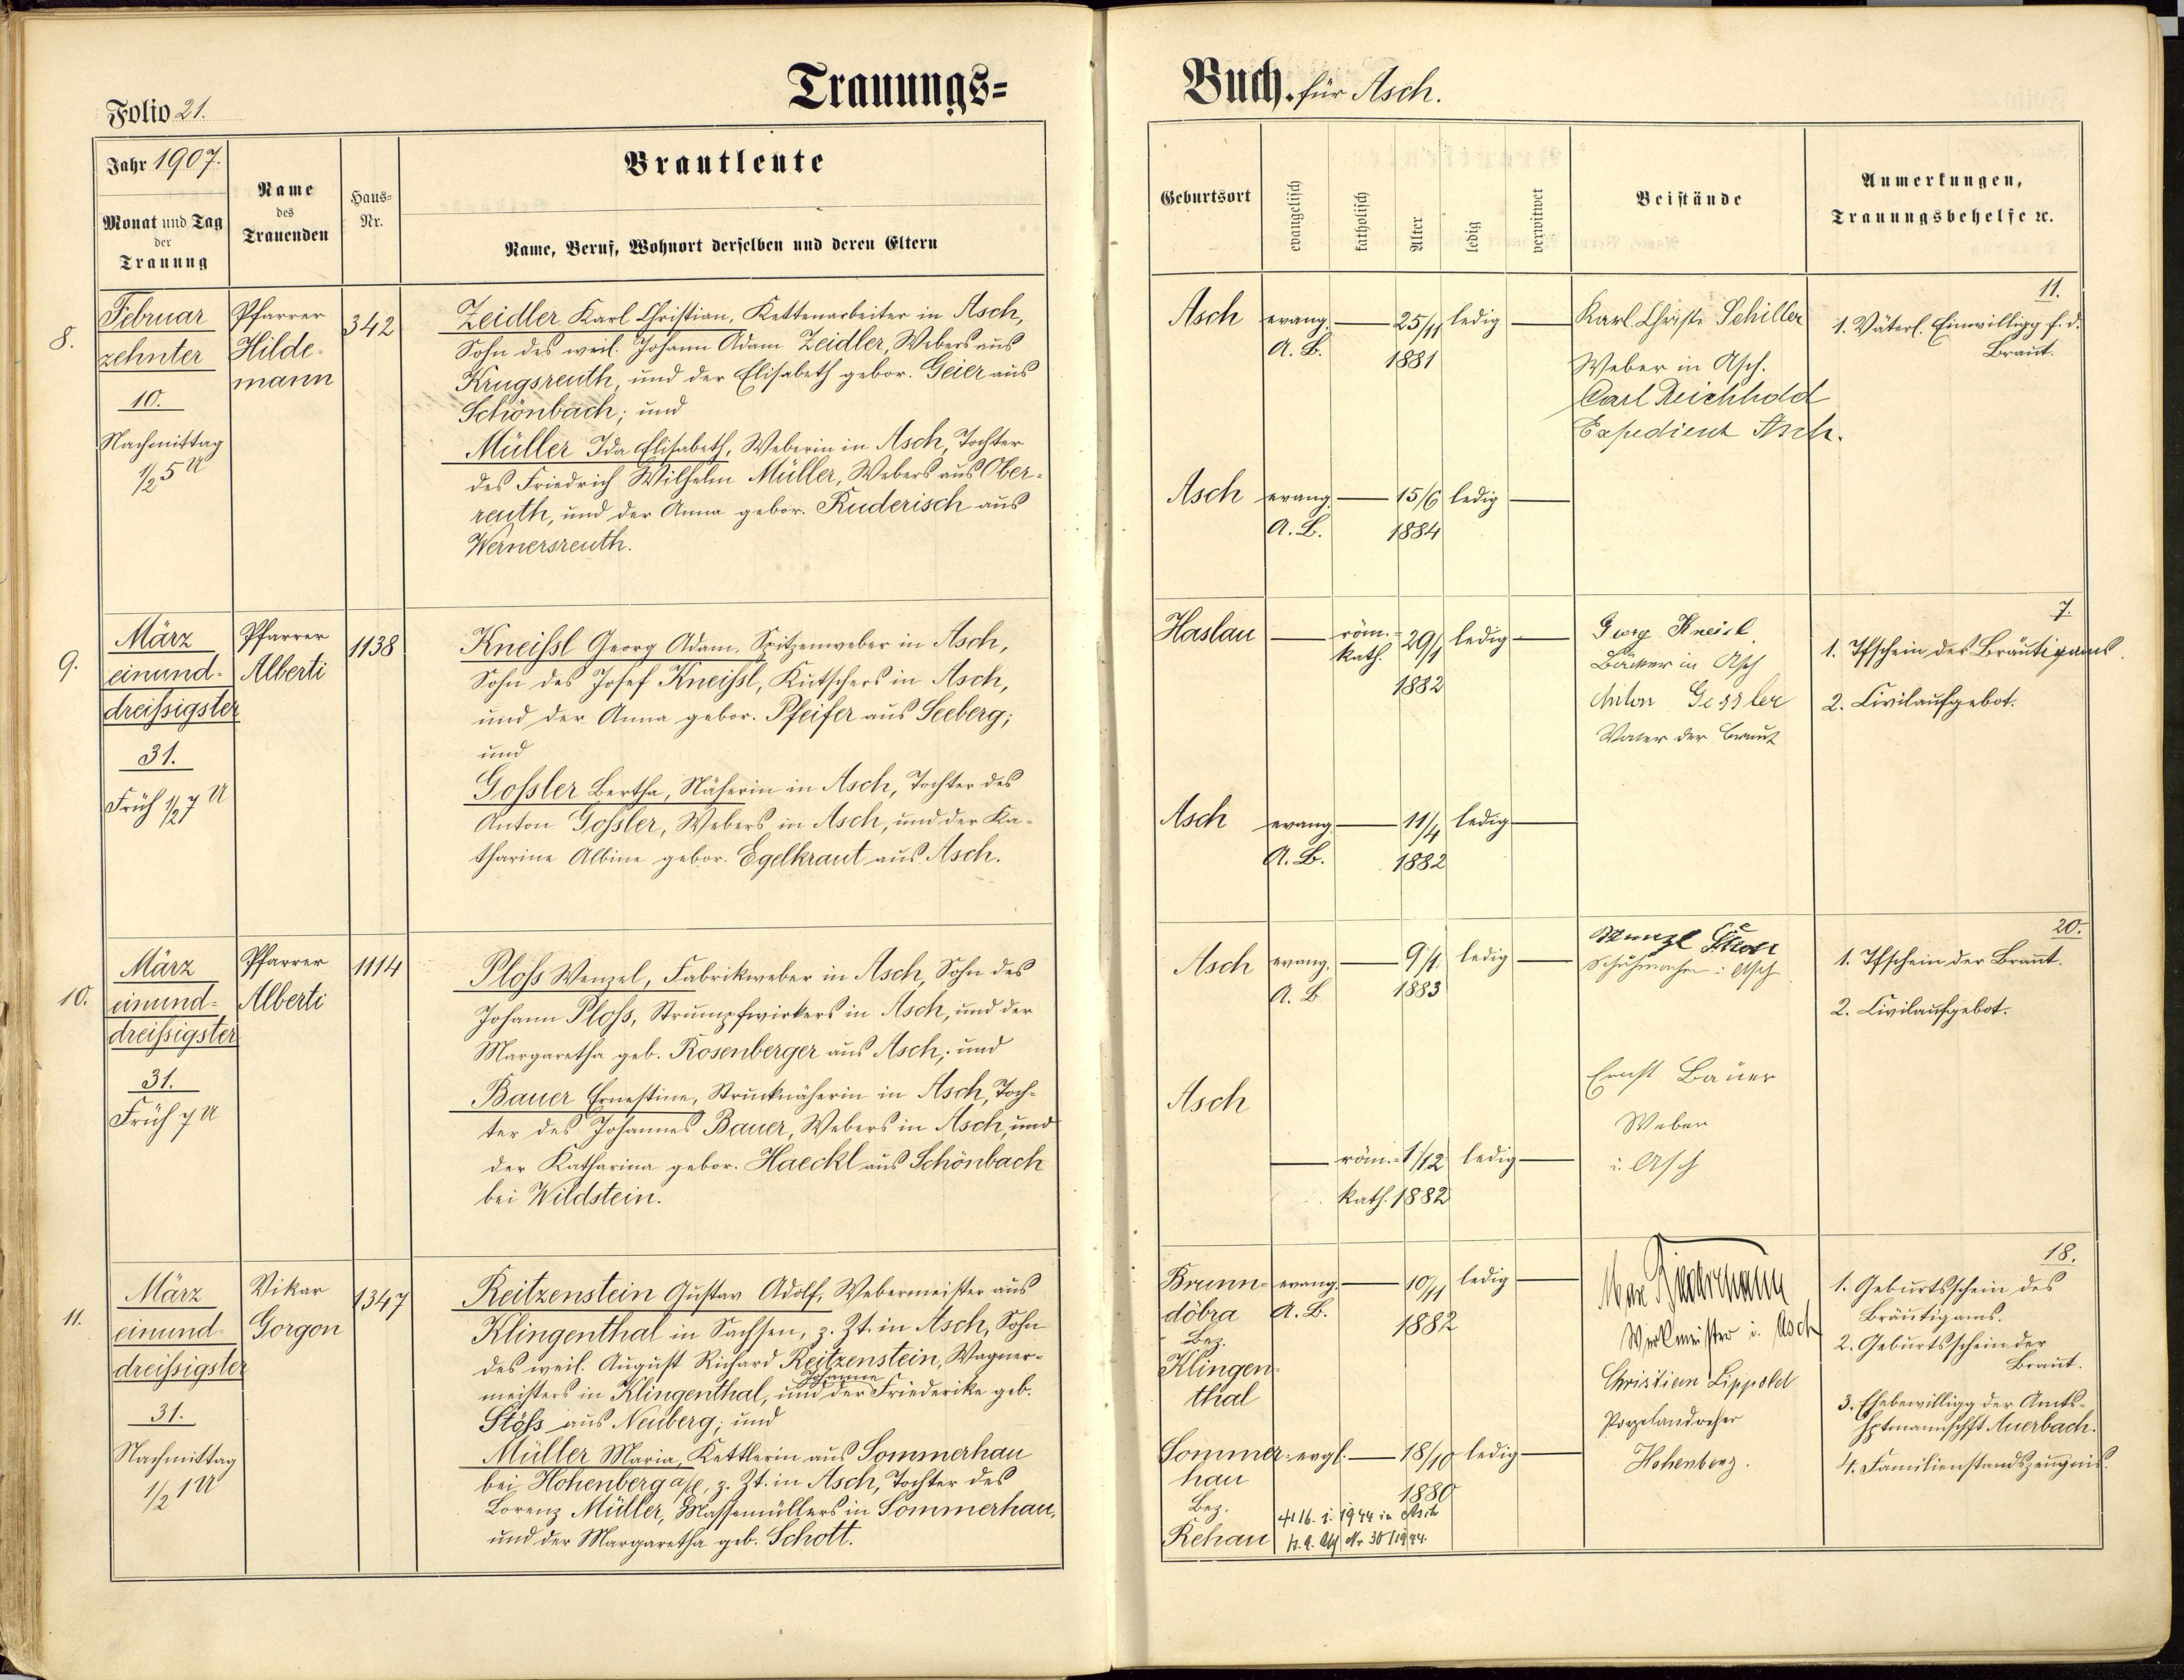 Trauungs=
Folio 21.
Jahr 1907.
Monat und Tag
der
Trauung
Name
des
Trauenden
Haus=
Nr.
Brautleute
Name, Beruf, Wohnort derselben und deren Eltern
8.
Februar
zehnter
10.
Nachmittag
1/2 5 U
Pfarrer
Hilde-
mann
342
Zeidler Karl Christian, Kettenarbeiter in Asch,
Sohn des weil. Johann Adam Zeidler, Webers aus
Krugsreuth, und der Elisabeth gebor. Geier aus
Schönbach; und
Müller Ida Elisabeth, Weberin in Asch, Tochter
des Friedrich Wilhelm Müller, Webers aus Ober-
reuth, und der Anna gebor. Ruderisch aus
Wernersreuth.
9.
März
einund-
dreißigster
31.
Früh 1/2 7 U
Pfarrer
Alberti
1138
Kneißl Georg Adam, Spitzenweber in Asch,
Sohn des Josef Kneißl, Kutschers in Asch,
und der Anna gebor. Pfeifer aus Seeberg;
und
Goßler Bertha, Näherin in Asch, Tochter des
Anton Goßler, Webers in Asch, und der Ka-
tharine Albine gebor. Egelkraut aus Asch.
10.
März
einund=
dreißigster
31.
Früh 7 U
Pfarrer
Alberti
1114
Ploß Wenzel, Fabrikweber in Asch, Sohn des
Johann Ploß, Strumpfwirkers in Asch, und der
Margaretha geb. Rosenberger aus Asch; und
Bauer Ernestine, Strucknäherin in Asch, Toch-
ter des Johannes Bauer, Webers in Asch, und
der Katharina gebor. Haeckl aus Schönbach
bei Wildstein.
11.
März
einund-
dreißigster
31.
Nachmittag
1/2 1 U
Vikar
Gorgon
1347
Reitzenstein Gustav Adolf, Webermeister aus
Klingenthal in Sachsen, z. Zt. in Asch, Sohn
des weil. August Richard Reitzenstein, Wagner-
Johanne
meisters in Klingenthal, und der Friederike geb.
Stöß aus Neuberg; und
Müller Maria, Kettlerin aus Sommerhau
bei Hohenberg a/E, z. Zt. in Asch, Tochter des
Lorenz Müller, Massemüllers in Sommerhau,
und der Margaretha geb. Schott.
Buch. für Asch.
Geburtsort
evangelisch
katholisch
Alter
ledig
verwitwet
Beistände
Anmerkungen,
Trauungsbehelfe ꝛc.
Asch
evang.
A. B.
25/11
1881
ledig
Karl Christ. Schiller
Weber in Asch.
Carl Reichhold
Expedient Asch.
11.
1. Väterl. Einwilligg f. d.
Braut.
Asch
evang.
A. B.
15/6
1884
ledig
Haslau
röm.-
kath.
29/1
1882
ledig
Georg Kneisl
Bäcker in Asch
Anton Gossler
Vater der Braut
7.
1. Tfschein des Bräutigams.
2. Civilaufgebot.
Asch
evang.
A. B.
11/4
1882
ledig
Asch
evang.
A. B
1883
ledig
Schuhmacher i. Asch
20.
1. Tfschein der Braut.
2. Civilaufgebot.
Asch
röm.-
kath.
1/12
1882
ledig
Ernst Bauer
Weber
i. Asch
Brunn-
döbra
Bez.
Klingen-
thal
evang.
A. B.
10/11
1882
ledig
Max Biedermann
Werkmeister i. Asch
Christian Lippold
Porzelandreher
Hohenberg.
18.
1. Geburtsschein des
Bräutigams.
2. Geburtsschein der
Braut.
3. Ehebewilligg der Amts-
hptmannschft Auerbach.
4. Familienstandszeugnis.
Sommer-
hau
Bez.
Rehau
evgl.
18/10
1880
ledig
16. 1. 1944 in Asch
Nr 30/1944.